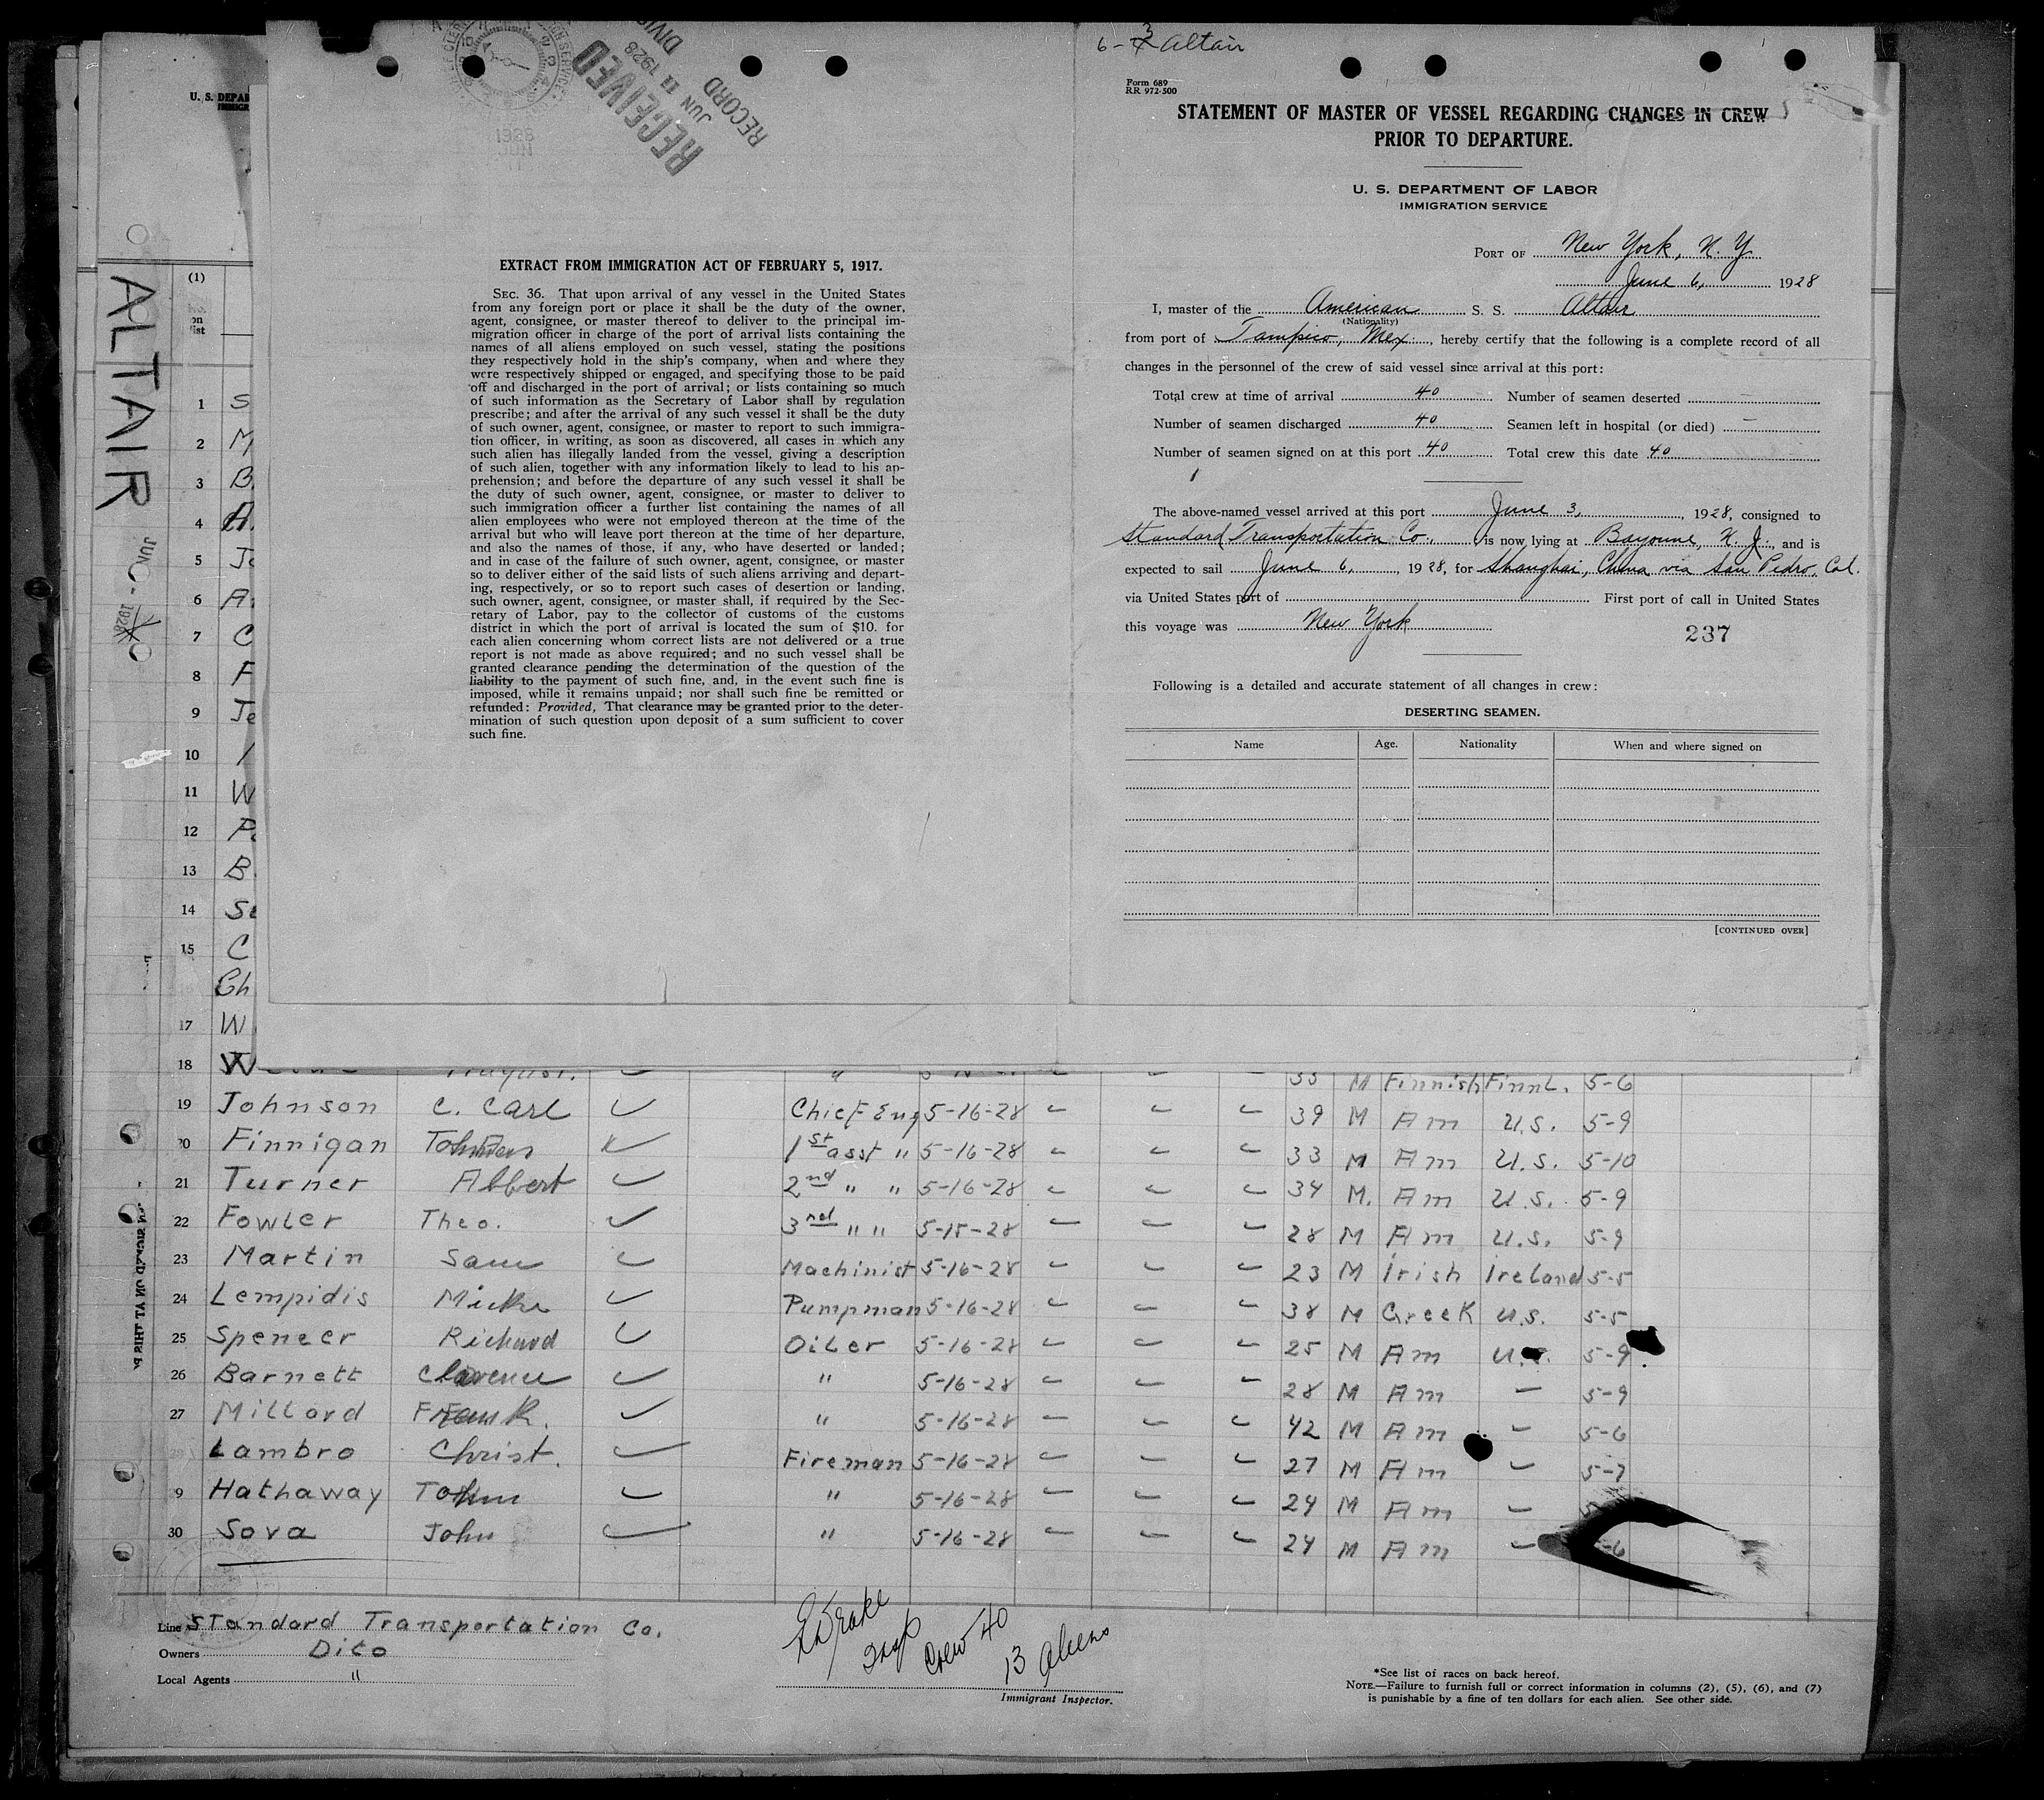 U. S. DEPAR
IMMIGR
ALTAIR
JUN - 1928
(1)
on
list
1 S
2 M
3 B.
4 A.
5 Jo
6 A
7 C
8 F
9 Je
10
11 W
12 P
13 B
14 S
15 C
Ch
17 W
18 W
RECEIVED
JUN 11 1928
RECORD
DIVIS
1928
JUN
EXTRACT FROM IMMIGRATION ACT OF FEBRUARY 5, 1917.
SEC. 36. That upon arrival of any vessel in the United States
from any foreign port or place it shall be the duty of the owner,
agent, consignee, or master thereof to deliver to the principal im-
migration officer in charge of the port of arrival lists containing the
names of all aliens employed on such vessel, stating the positions
they respectively hold in the ship's company, when and where they
were respectively shipped or engaged, and specifying those to be paid
off and discharged in the port of arrival; or lists containing so much
of such information as the Secretary of Labor shall by regulation
prescribe; and after the arrival of any such vessel it shall be the duty
of such owner, agent, consignee, or master to report to such immigra-
tion officer, in writing, as soon as discovered, all cases in which any
such alien has illegally landed from the vessel, giving a description
of such alien, together with any information likely to lead to his ap-
prehension; and before the departure of any such vessel it shall be
the duty of such owner, agent, consignee, or master to deliver to
such immigration officer a further list containing the names of all
alien employees who were not employed thereon at the time of the
arrival but who will leave port thereon at the time of her departure,
and also the names of those, if any, who have deserted or landed;
and in case of the failure of such owner, agent, consignee, or master
so to deliver either of the said lists of such aliens arriving and depart-
ing, respectively, or so to report such cases of desertion or landing,
such owner, agent, consignee, or master shall, if required by the Sec-
retary of Labor, pay to the collector of customs of the customs
district in which the port of arrival is located the sum of $10. for
each alien concerning whom correct lists are not delivered or a true
report is not made as above required; and no such vessel shall be
granted clearance pending the determination of the question of the
liability to the payment of such fine, and, in the event such fine is
imposed, while it remains unpaid; nor shall such fine be remitted or
refunded: Provided, That clearance may be granted prior to the deter-
mination of such question upon deposit of a sum sufficient to cover
such fine.
6-3 Altair
Form 689
RR 972-500
STATEMENT OF MASTER OF VESSEL REGARDING CHANGES IN CREW
PRIOR TO DEPARTURE.
U. S. DEPARTMENT OF LABOR
IMMIGRATION SERVICE
PORT OF New York, N. Y.
June 6, 1928
I, master of the American S. S. Altair
(Nationality)
from port of Tampico, Mex., hereby certify that the following is a complete record of all
changes in the personnel of the crew of said vessel since arrival at this port:
Total crew at time of arrival 40 Number of seamen deserted —
Number of seamen discharged 40 Seamen left in hospital (or died) —
Number of seamen signed on at this port 40 Total crew this date 40
The above-named vessel arrived at this port June 3, 1928, consigned to
Standard Transportation Co., is now lying at Bayonne, N. J., and is
expected to sail June 6, 1928, for Shanghai, China via San Pedro, Cal.
via United States port of First port of call in United States
this voyage was New York
237
Following is a detailed and accurate statement of all changes in crew:
DESERTING SEAMEN.
Name Age. Nationality When and where signed on
[CONTINUED OVER]
August. " 35 M Finnish Finnl. 5-6
19 Johnson C. Carl Chief Eng 5-16-28 39 M Am U.S. 5-9
20 Finnigan 1st asst " 5-16-28 33 M Am U.S. 5-10
21 Turner Albert 2nd " " 5-16-28 34 M. Am U.S. 5-9
22 Fowler Theo. 3rd " " 5-15-28 28 M Am U.S. 5-9
23 Martin Sam Machinist 5-16-28 23 M Irish Ireland 5-5
24 Lempidis Mike Pumpman 5-16-28 38 M Greek U.S. 5-5
25 Spencer Richard Oiler 5-16-28 25 M Am U.S. 5-9
26 Barnett Clarence " 5-16-28 28 M Am — 5-9
27 Millard Frank. " 5-16-28 42 M Am — 5-6
Lambro Christ. Fireman 5-16-28 27 M Am — 5-7
9 Hathaway John " 5-16-28 24 M Am —
30 Sova John " 5-16-28 24 M Am — -6
Line Standard Transportation Co.
Owners Dito
Local Agents "
Drake
Insp
Crew 40
13 Aliens
Immigrant Inspector.
*See list of races on back hereof.
NOTE.—Failure to furnish full or correct information in columns (2), (5), (6), and (7)
is punishable by a fine of ten dollars for each alien. See other side.